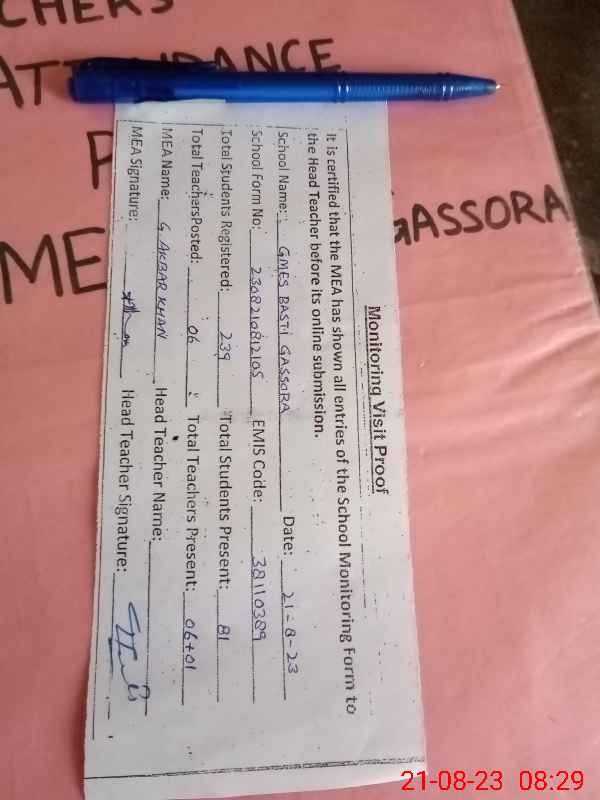 CHERS
ATTENDANCE
P
ME GASSORA
Monitoring Visit Proof
It is certified that the MEA has shown all entries of the School Monitoring Form to
the Head Teacher before its online submission.
School Name: GMES BASTI GASSORA Date: 21-8-23
School Form No: 2308210812105 EMIS Code: 38110389
Total Students Registered: 239 Total Students Present: 81
Total TeachersPosted: 06 Total Teachers Present: 06+01
MEA Name: G AKBAR KHAN Head Teacher Name:
MEA Signature: Head Teacher Signature:
21-08-23 08:29